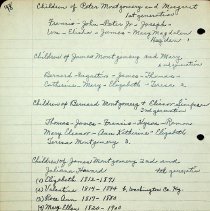 48
Children of Peter Montgomery and Margaret
1st generation
Francis - John - Peter Jr - Joseph -
Ira - Chisholm - James - Mary Magdalen
Hayden
Children of James Montgomery and Mary
2nd generation
Bernard - Augustus - James - Thomas -
Catherine - Mary - Elizabeth - Teresa
Children of Bernard Montgomery & Eleanor Simpson
3rd generation
Thomas - James - Francis - Hyram - Roman
Mary Eleanor - Ann Katherine - Elizabeth
Teresa Montgomery
Children of James Montgomery 2nd and
Juliana Howard 4th generation
(1) Elizabeth 1812-1891
(2) Valentine 1814-1884 b. Washington Co. Ky.
(3) Rose Ann 1817-1880
(4) Mary Ellen 1820-1900